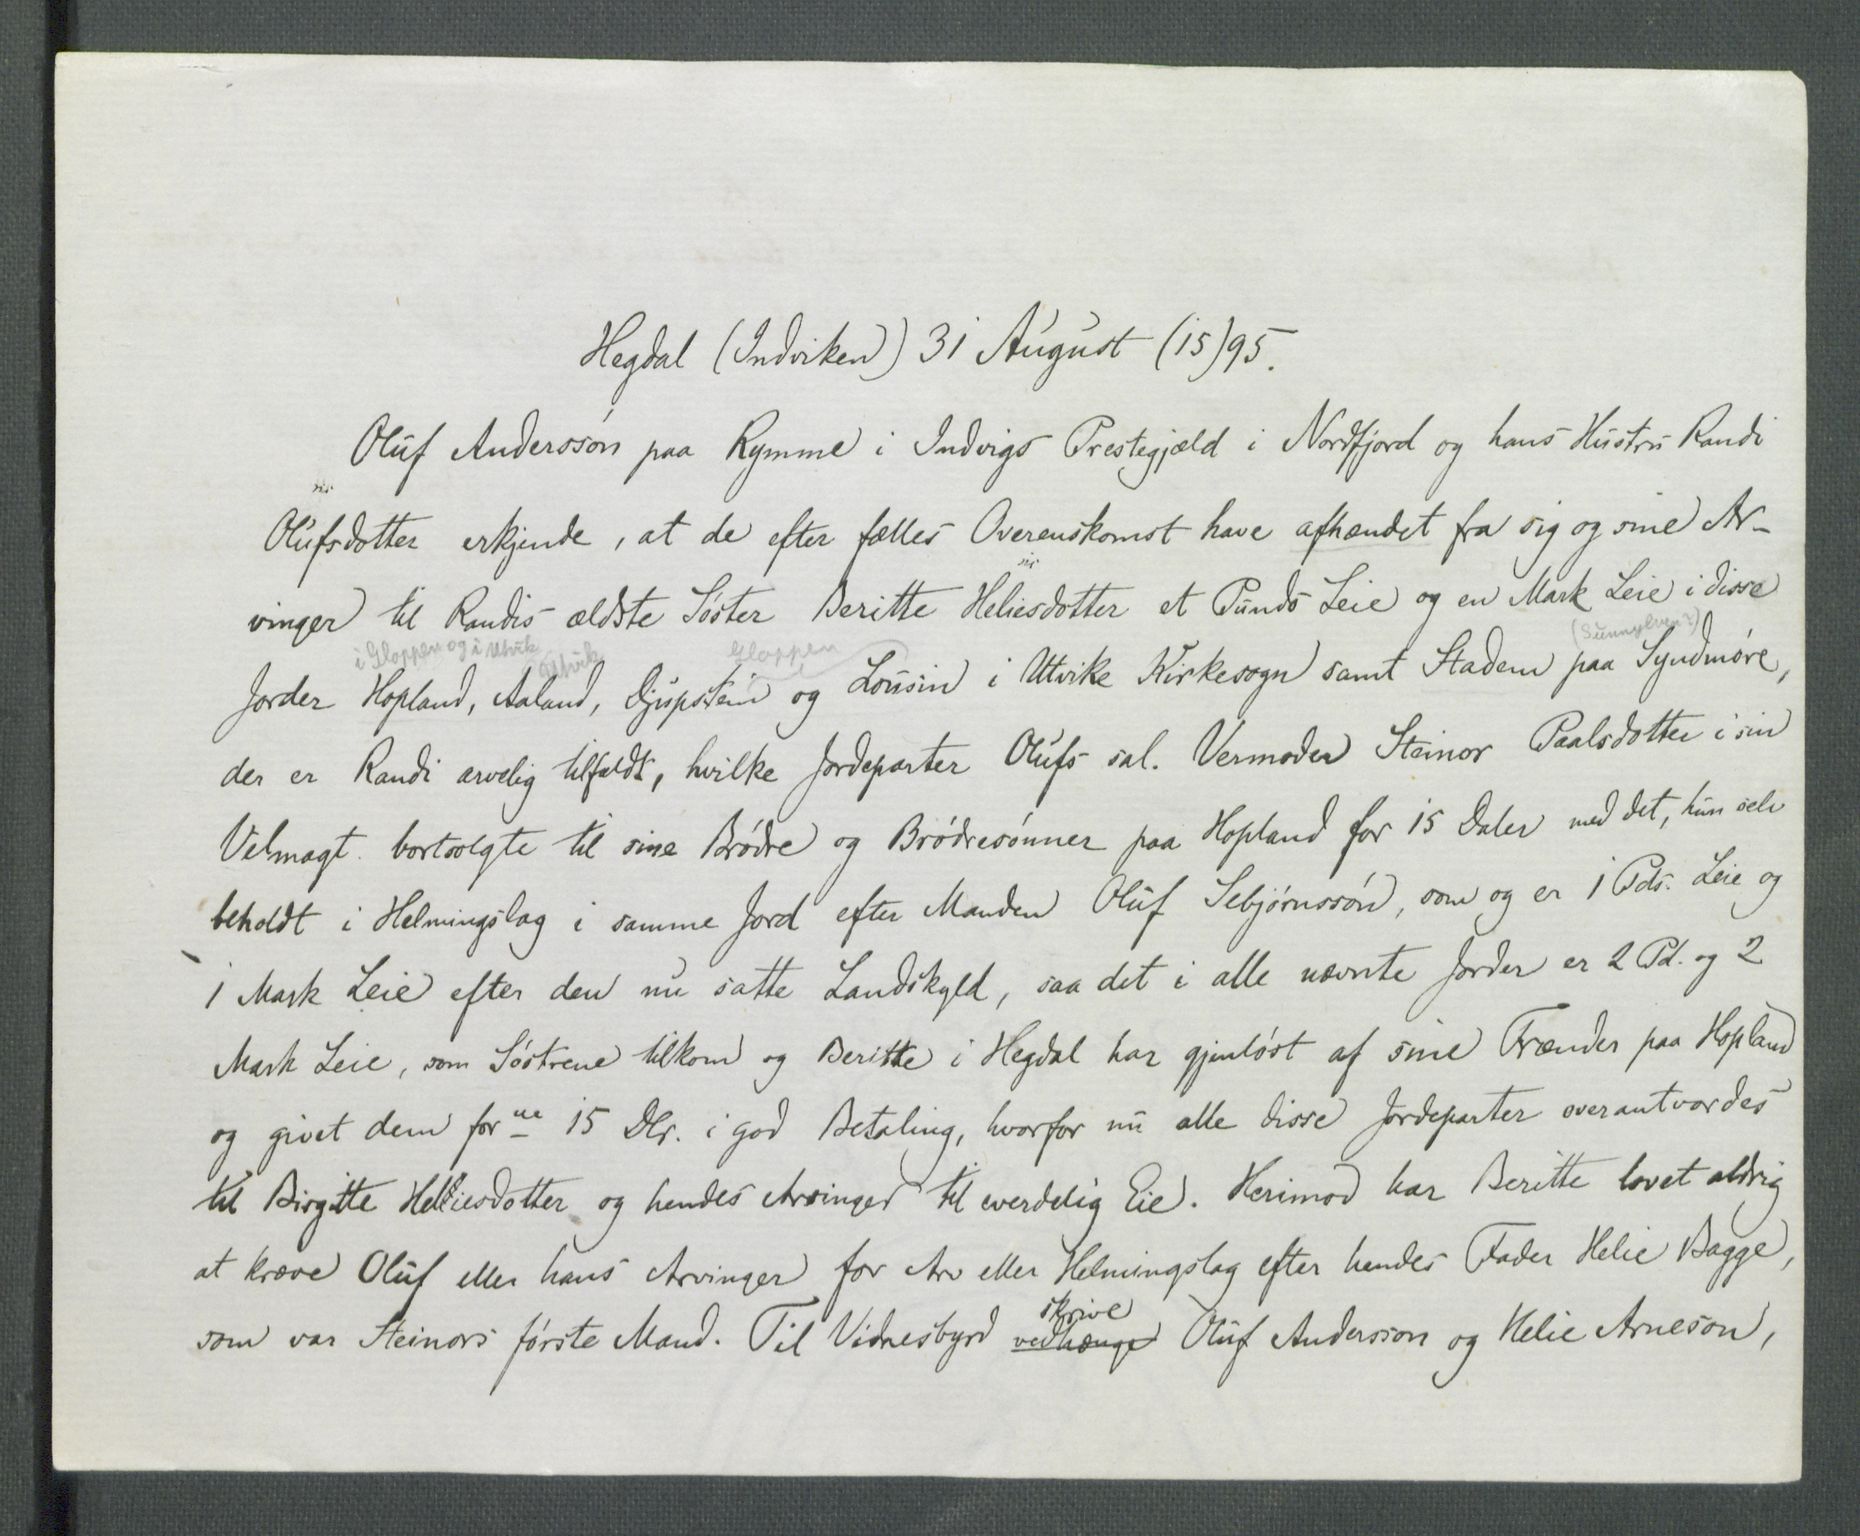 Hegdal (Indviken) 31 August (15)95.
Oluf Anderssön paa Rymme i Indvigs Prestegjæld i Nordfjord og hans Hustru Randi
Olufsdotter erkjende, at de efter fælles Overenskomst have afhændet fra sig og sine Ar-
vinger til Randis ældste Söster Beritte Heliesdotter et Punds Leie og en Mark Leie i disse
i Gloppen og i Utvik Utvik Gloppen (Sunnylven?)
Jorder Hopland, Aaland, Djupstein og Lousin i Utvike Kirkesogn samt Stadem paa Syndmöre,
der er Randi arvelig tilfaldt, hvilke Jordeparter Olufs sal. Vermoder Steinor Paalsdotter i sin
Velmagt bortsolgte til sine Brödre og Brödresönner paa Hopland for 15 Daler med det, hun selv
beholdt i Helmingslag i samme Jord efter Manden Oluf Sebjörnssön, som og er 1 Pds. Leie og
1 Mark Leie efter den nu satte Landskyld, saa det i alle nævnte Jorder er 2 Pd. og 2
Mark Leie, som Söstrene tilkom og Beritte i Hegdal har gjenlöst af sine Frænder paa Hopland
og givet dem forne 15 Dlr. i god Betaling, hvorfor nu alle disse Jordeparter overantvordes
til Birgitte Helliesdotter og hendes Arvinger til everdelig Eie. Herimod har Beritte lovet aldrig
at kræve Oluf eller hans Arvinger for Arv eller Helmingslag efter hendes Fader Helie Bagge,
skrive
som var Steinors förste Mand. Til Vidnesbyrd vedhænge Oluf Andersson og Helie Arneson,